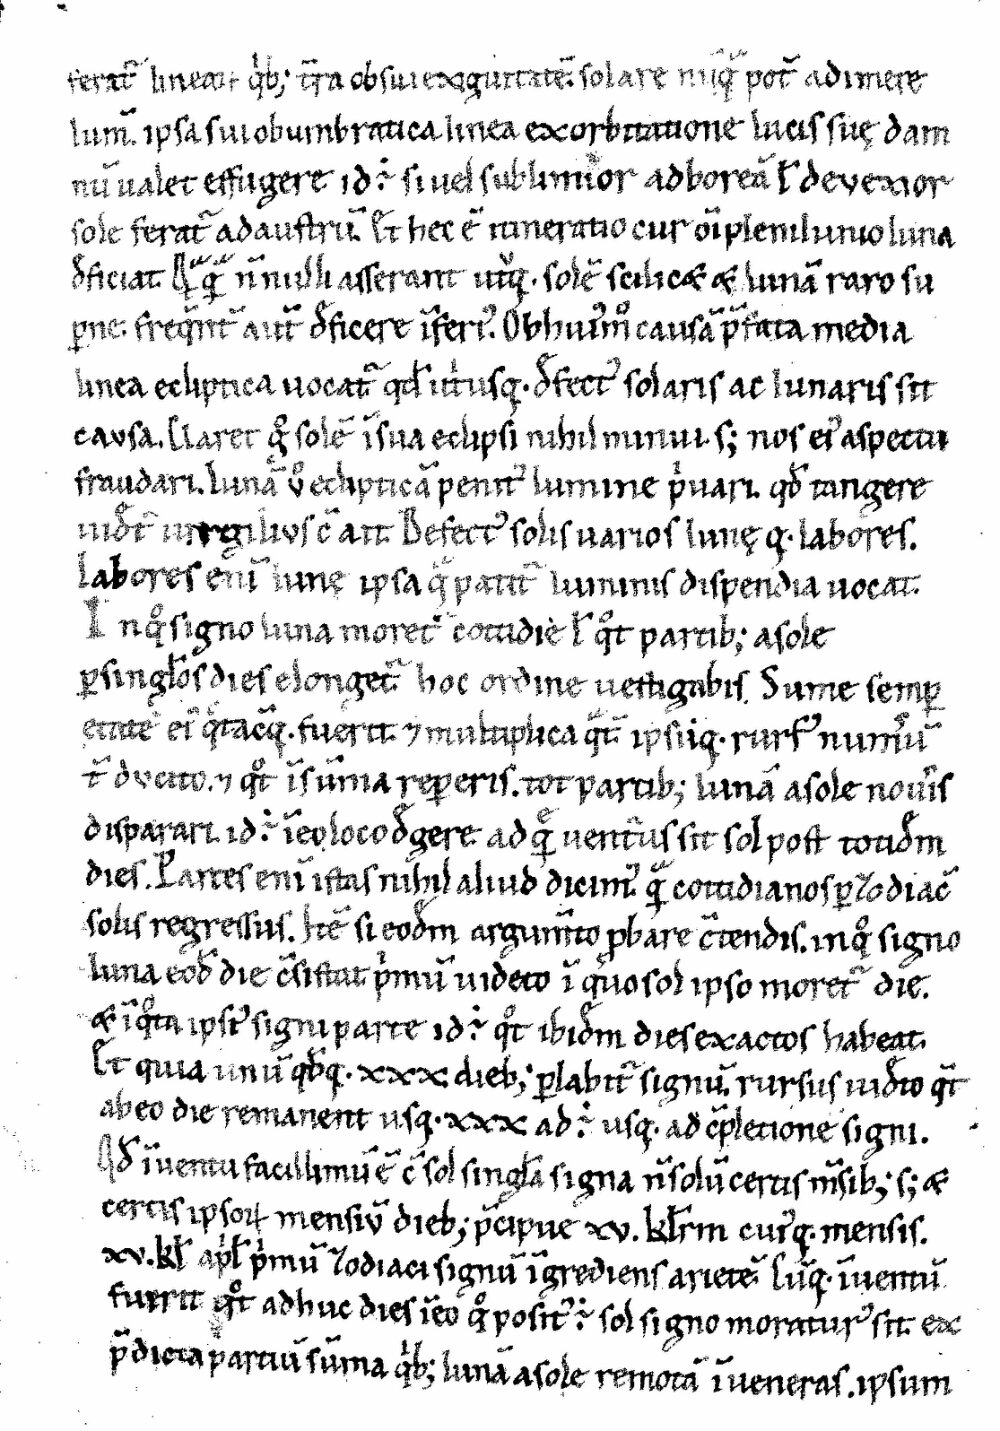 ferat᷑ linear̄ qͥb; t᷑ra ob sui exguitatē. solare nūqͣ pot᷑ adimere
lum̄. ipsa sui obumbratica linea exorbitatione lucis suę dam
nū ualet effugere id ÷ si uel sublimior ad boreā ł devexior
sole ferat᷑ ad austrū. Et hec ē itineratio cur oī plenilunio luna
đficiat. Qͣqͣ n̄nulli asserant ut̄q· solē scilic& & lunā raro su
ꝑne. freqn̄t᷑ aut̄ đficere īferiꝰ. Ob huiꝰmͦ causā p̄fata media
linea ecliptica uocat᷑ qđ ut̄usq· đfectꝰ solaris ac lunaris sit
causa. Claret qͦ solē ī sua eclipsi nihil minui. s; nos eiꝰ aspectu
fraudari. Lunā ꝟo eclipticā penitꝰ lumine pͥuari. qđ tangere
uiđt᷑ uirgilius c̄ ait. Defectꝰ solis varios lunę q· labores.
Labores enī lunę ipsa qͣ patit᷑ luminis dispendia uocat.
In qͦ signo luna moret᷑ cottidie ł qͦt partib; a sole
ꝑ singłos dies elonget᷑ hoc ordine uestigabis. Sume semꝑ
etatē eiꝰ qͣtacūq· fuerit. ⁊ multiplica qͣt᷑ ipsiq· rursꝰ numͥū
t᷑ ducito. ⁊ qͦt ī sūma reꝑeris. tot partib; lunā a sole nouͥis
disparari. id ÷ ī eo loco đgere ad qͣē uent̄us sit sol post totiđm
dies. Partes enī istas nihil aliud dicimꝰ qͣ̄ cottidianos ꝑ zodiac̄
solis regressus. Itē si eođm argum̄to ꝓbare c̄tendis. in qͦ signo
luna eođ die c̄sistat pͥmū uideto ī quo sol ipso moret᷑ die.
& ī qͦta ipsiꝰ signi parte id ÷ qͦt ibiđm dies exactos habeat.
Et quia unū qđq· xxx dieb; ꝑlabit᷑ signū. rursus uiđto qͦt
ab eo die remanent usq· xxx ad ÷ usq· ad c̄pletionē signi.
Qđ īuentu facillimū ē c̄ sol singła signa n̄ solū certis m̄sib; s; &
certis ipsoꝝ mensiū dieb; p̄cipue xv. kłrm cuiꝰq· mensis.
xv. kł apͥł pͥmū zodiaci signū īgrediens arietē. Cūq· īuentū
fuerit qͦt adhuc dies ī eo qͦ positꝰ ÷ sol signo moraturꝰ sit. ex
p̄dicta partiū sūma qͥb; lunā a sole remotā īueneras. ipsum